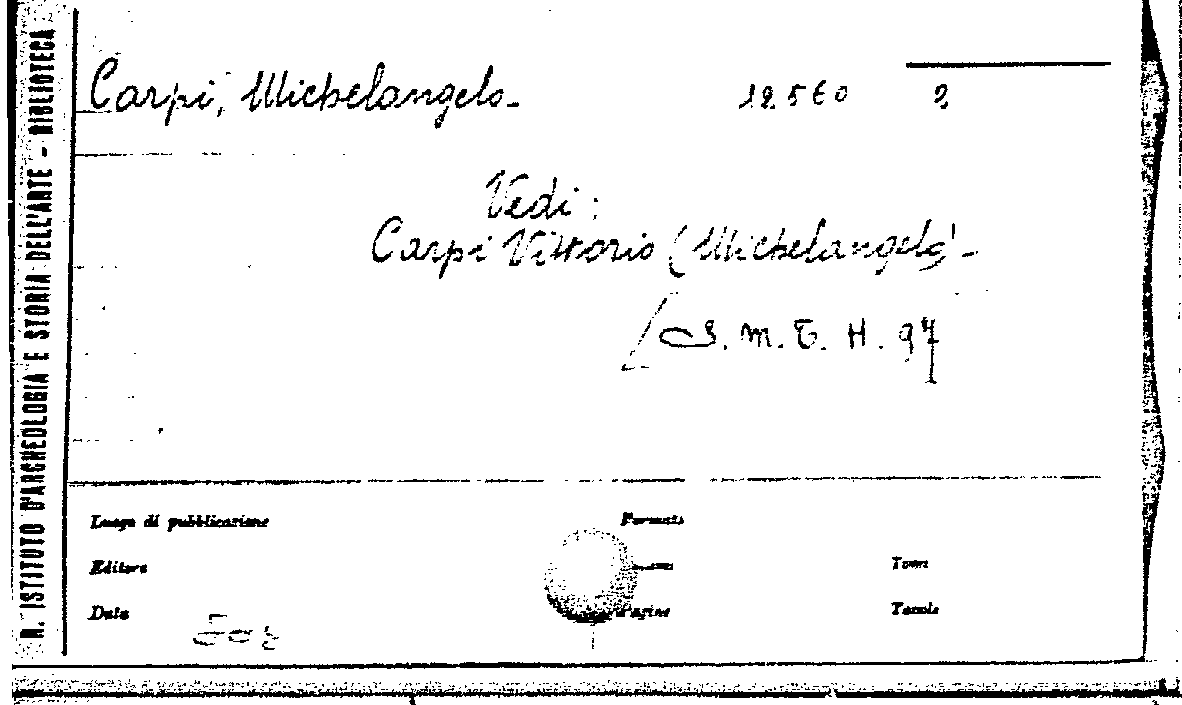 R. ISTITUTO D'ARCHEOLOGIA E STORIA DELL'ARTE - BIBLIOTECA
Carpi, Michelangelo - 12560 2
Vedi:
Carpi Vittorio (Michelangelo) -
S. M. E. H. 97
Luogo di pubblicazione Formato
Editore Tomi
Data Pagine Tavole